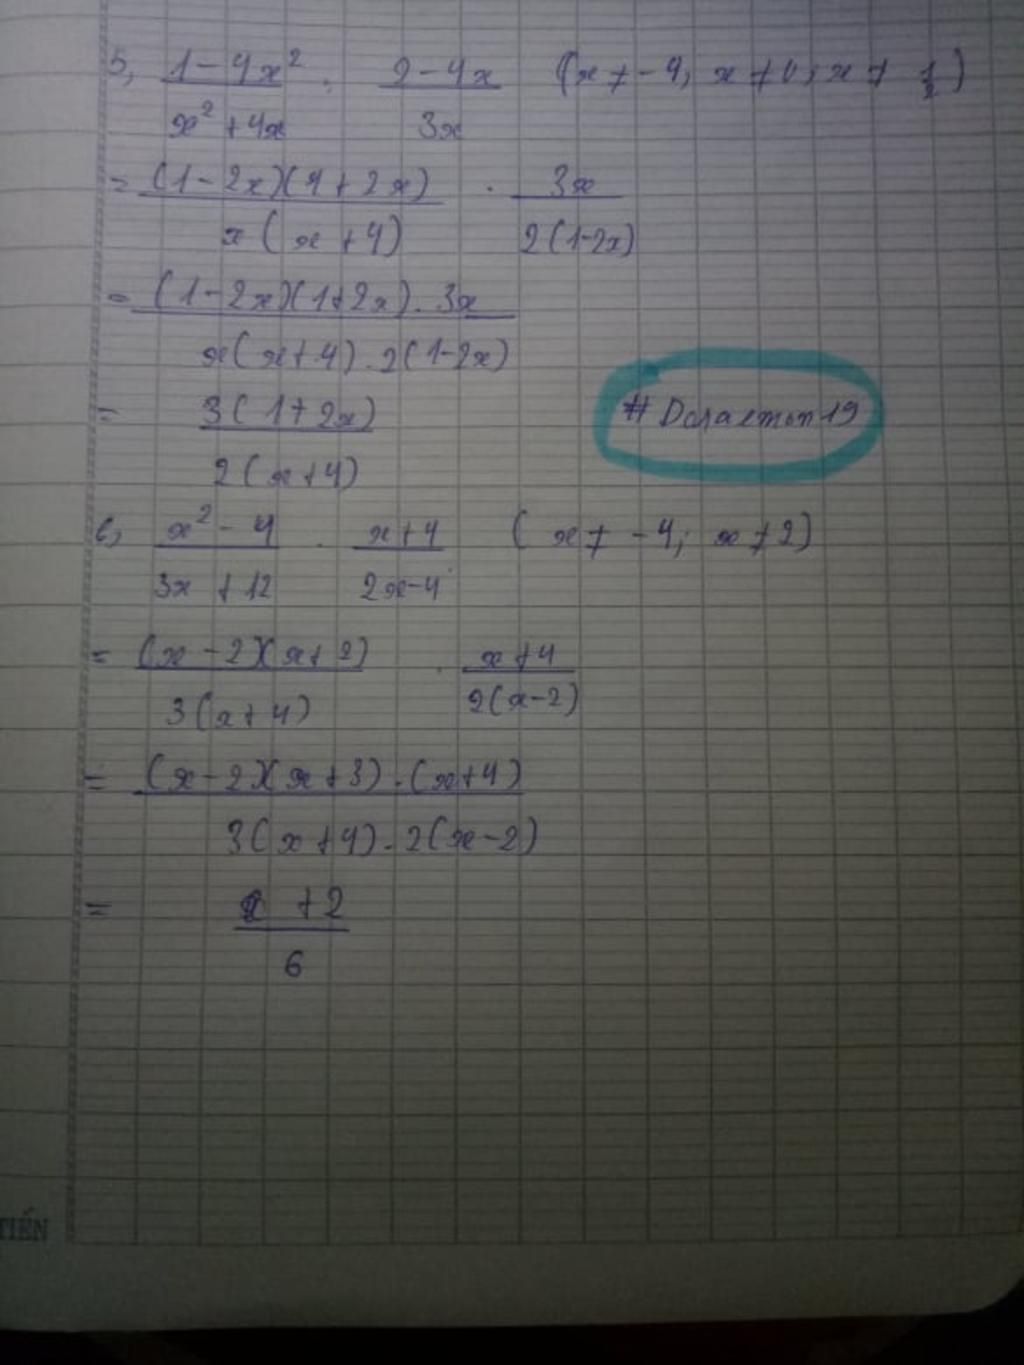 5, (1 - 4x²)/(x² + 4x) : (2 - 4x)/(3x) (x ≠ -4; x ≠ 0; x ≠ 1/2)
= ((1 - 2x)(1 + 2x))/(x(x + 4)) . (3x)/(2(1-2x))
= ((1 - 2x)(1 + 2x) . 3x)/(x(x + 4) . 2(1 - 2x))
= (3(1 + 2x))/(2(x + 4))
#
(x² - 4)/(3x + 12) . (x + 4)/(2x - 4) (x ≠ -4; x ≠ 2)
= ((x - 2)(x + 2))/(3(x + 4)) . (x + 4)/(2(x - 2))
= ((x - 2)(x + 3) . (x + 4))/(3(x + 4) . 2(x - 2))
= (x + 2)/6
TIẾN